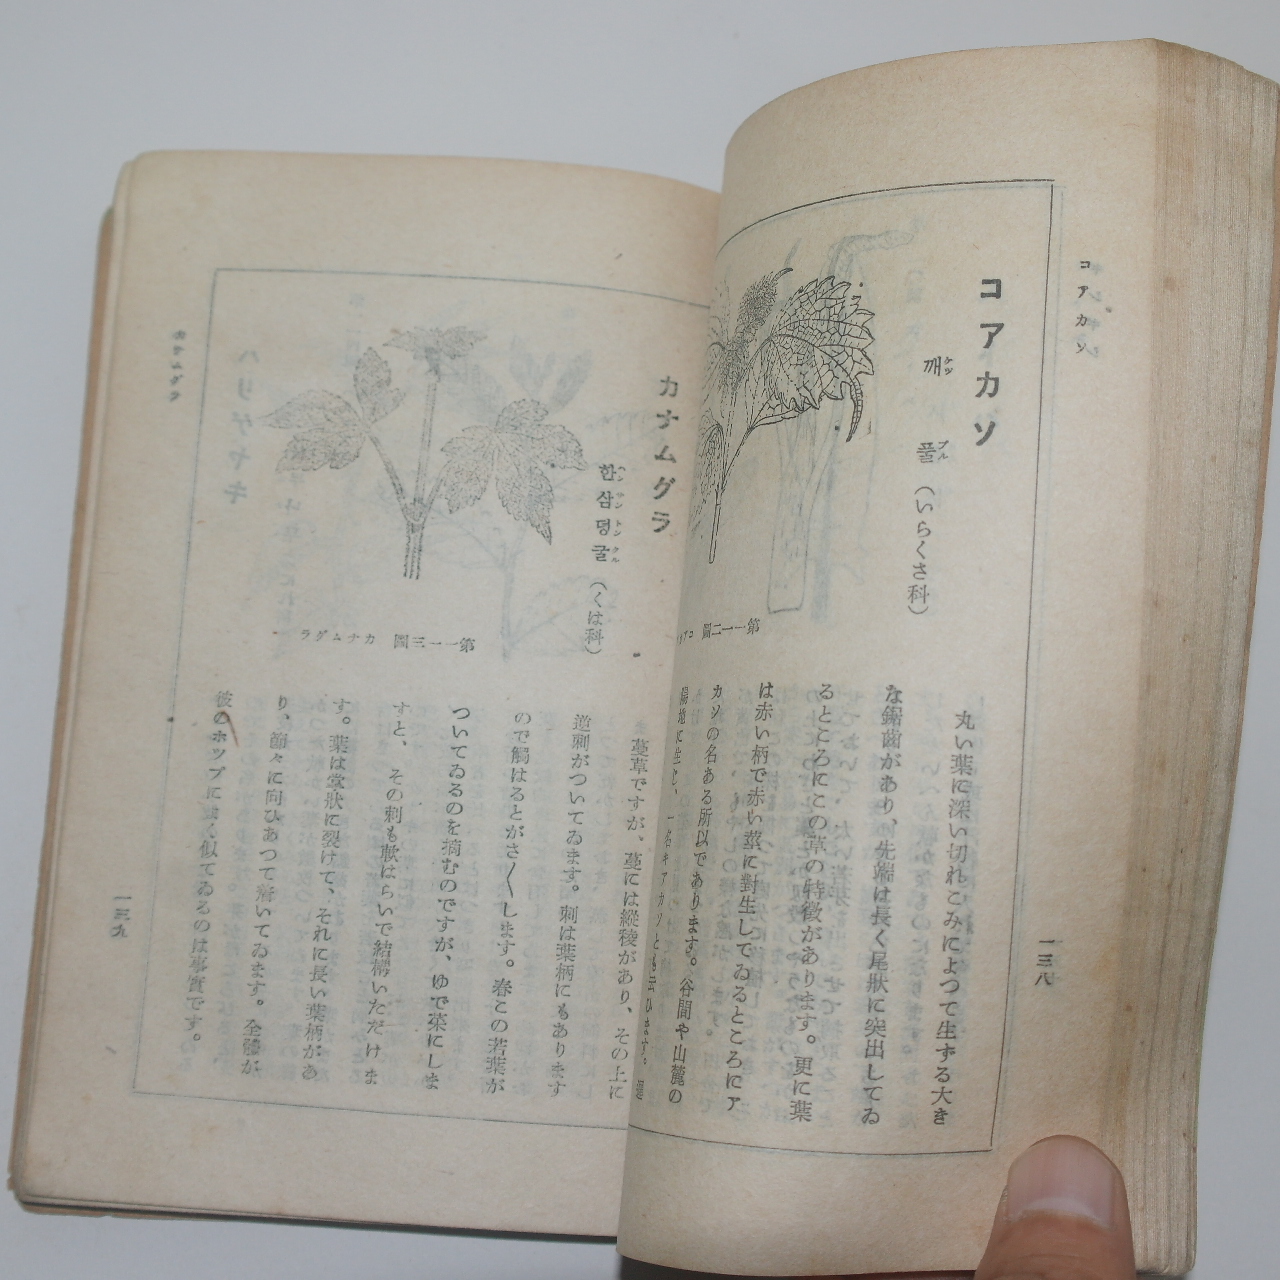 コアカソ
コアカソ
깨풀
ケツプル
(いらくさ科)
第一一二圖 コア
丸い葉に深い切れこみによつて生ずる大き
な鋸齒があり、先端は長く尾狀に突出してゐ
るところにこの草の特徴があります。更に葉
は赤い柄で赤い莖に對生してゐるところにア
カソの名ある所以であります。谷間や山麓の
陽地に生じ、一名キアカソとも云ひます。
一三八
カナムグラ
한삼덩굴
ハンサントンクル
(くは科)
第一一三圖 カナムグラ
蔓草ですが、蔓には縱稜があり、その上に
逆刺がついてゐます。刺は葉柄にもあります
ので觸はるとがさ〱します。春この若葉が
ついてゐるのを摘むのですが、ゆで菜にしま
すと、その刺も軟はらいで結構いただけま
す。葉は掌狀に裂けて、それに長い葉柄があ
り、節々に向ひあつて着いてゐます。全體が
彼のホツプによく似てゐるのは事實です。
カナムグラ
一三九